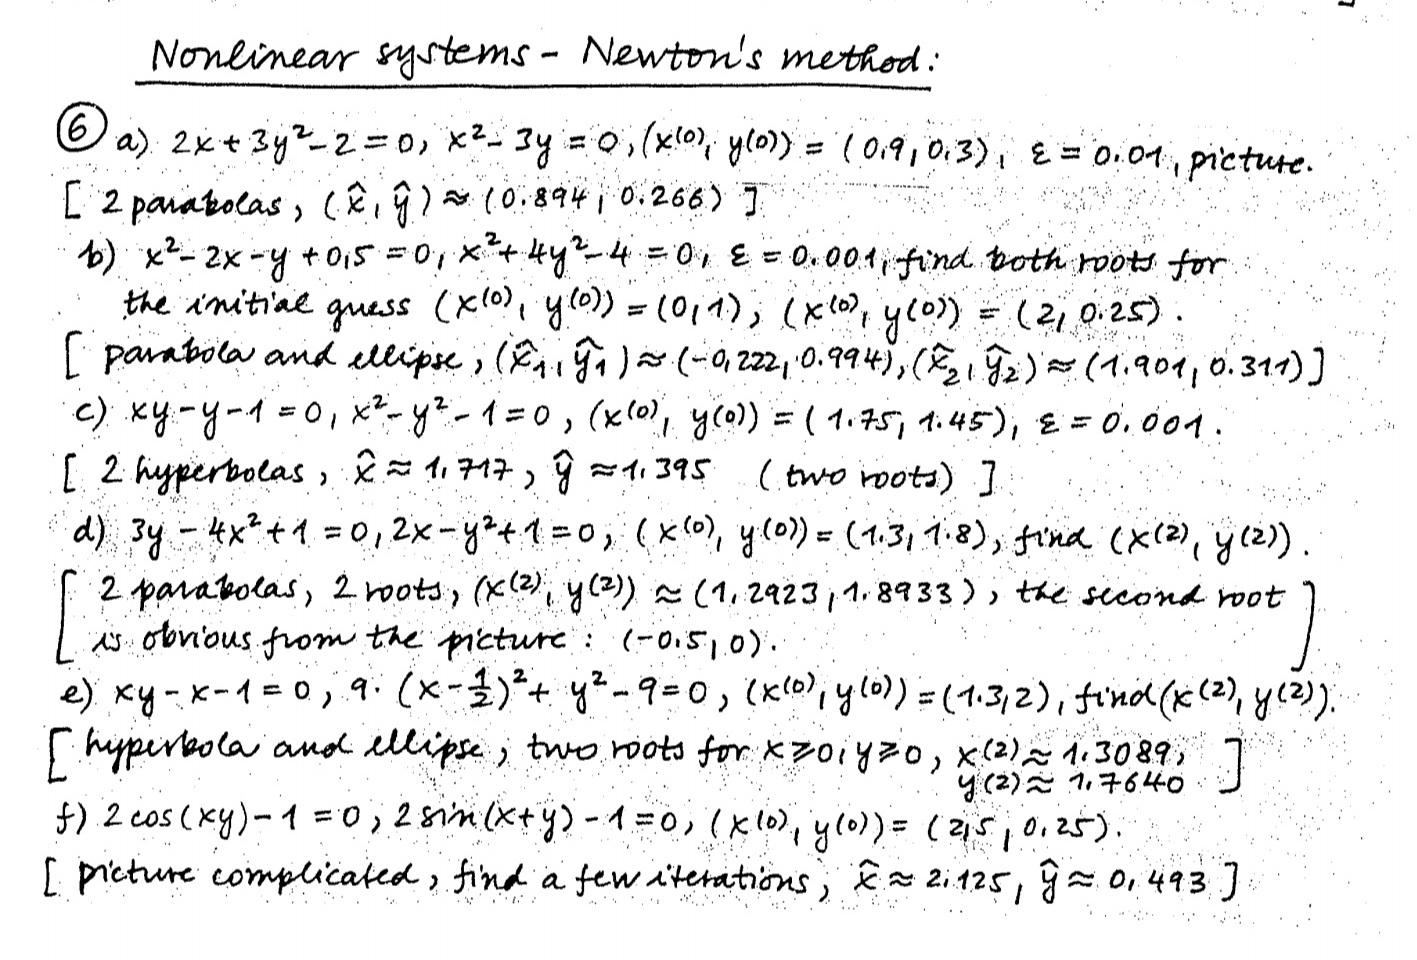 Nonlinear systems - Newton's method:
⑥ a) 2x + 3y² - 2 = 0, x² - 3y = 0, (x⁽⁰⁾, y⁽⁰⁾) = (0,9, 0,3), ε = 0.01, picture.
[ 2 parabolas, (x̂, ŷ) ≈ (0.894, 0.266) ]
b) x² - 2x - y + 0,5 = 0, x² + 4y² - 4 = 0, ε = 0.001, find both roots for
the initial guess (x⁽⁰⁾, y⁽⁰⁾) = (0,1), (x⁽⁰⁾, y⁽⁰⁾) = (2, 0.25).
[ parabola and ellipse, (x̂₁, ŷ₁) ≈ (-0,222, 0.994), (x̂₂, ŷ₂) ≈ (1.901, 0.311) ]
c) xy - y - 1 = 0, x² - y² - 1 = 0, (x⁽⁰⁾, y⁽⁰⁾) = (1.75, 1.45), ε = 0.001.
[ 2 hyperbolas, x̂ ≈ 1,717, ŷ ≈ 1,395 (two roots) ]
d) 3y - 4x² + 1 = 0, 2x - y² + 1 = 0, (x⁽⁰⁾, y⁽⁰⁾) = (1.3, 1.8), find (x⁽²⁾, y⁽²⁾).
[ 2 parabolas, 2 roots, (x⁽²⁾, y⁽²⁾) ≈ (1,2923, 1.8933), the second root
is obvious from the picture : (-0.5, 0). ]
e) xy - x - 1 = 0, 9. (x - ½)² + y² - 9 = 0, (x⁽⁰⁾, y⁽⁰⁾) = (1.3, 2), find (x⁽²⁾, y⁽²⁾).
[ hyperbola and ellipse, two roots for x ≥ 0, y ≥ 0, x⁽²⁾ ≈ 1.3089,
y⁽²⁾ ≈ 1,7640 ]
f) 2 cos(xy) - 1 = 0, 2 sin(x+y) - 1 = 0, (x⁽⁰⁾, y⁽⁰⁾) = (2,5, 0.25).
[ picture complicated, find a few iterations, x̂ ≈ 2.125, ŷ ≈ 0,493 ]